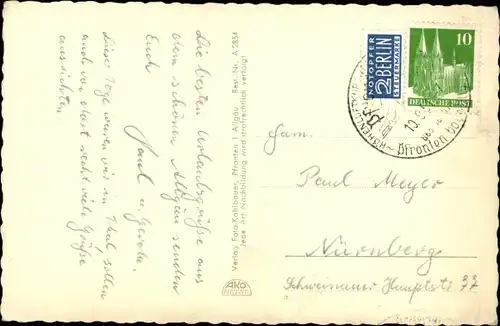 Die besten Urlaubsgrüße aus
dem schönen Allgäu senden
Euch
Paul u. Gerda.
Diese Tage waren wir in Thal
und vor
aussichten
sehr viele Grüße
Verlag Foto-Kohlbauer, Pfronten i. Allgäu Best. Nr. A 2854
Jede Art Nachbildung wird strafrechtlich verfolgt!
AKO
NOTOPFER
2 BERLIN
STEUERMARKE
10
DEUTSCHE POST
HÖHENLUFTKUR
Pfronten
10.
Fam.
Paul Meyer
Nürnberg
Schweinauer Hauptstr. 77